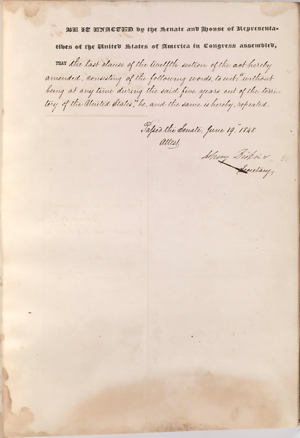 BE IT ENACTED by the Senate and House of Representa-
tives of the United States of America in Congress assembled,
THAT the last clause of the twelfth section of the act hereby
amended, consisting of the following words, to wit: "without
being at any time during the said five years out of the terri-
tory of the United States," be, and the same is hereby, repealed.
Passed the Senate, June 19, 1848
Attest
Asbury Dickins
Secretary,